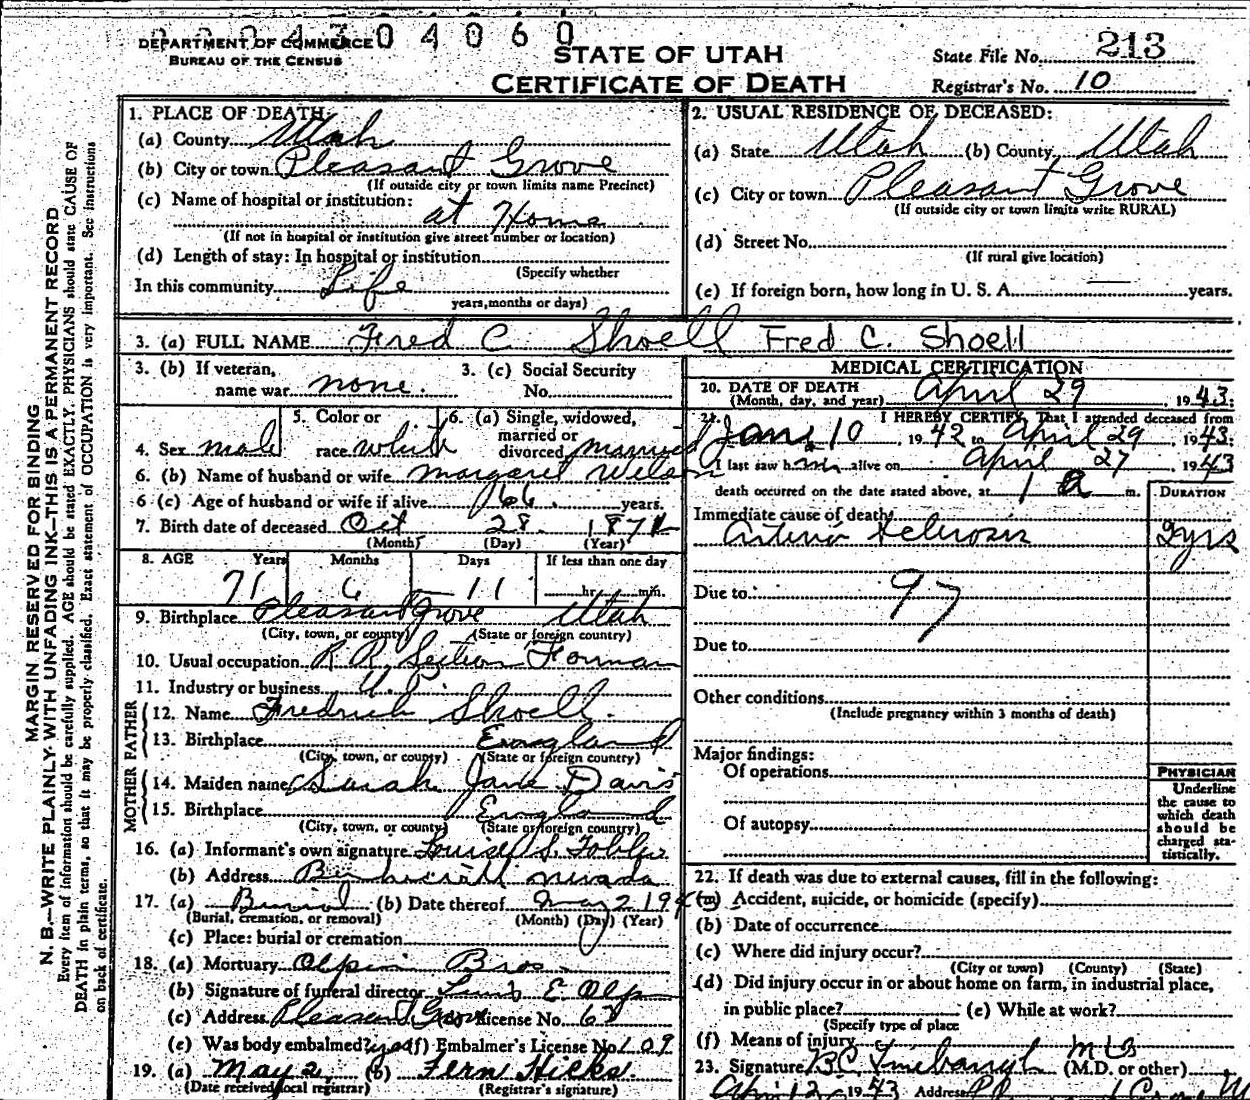 0 0 2 4 3 0 4 0 6 0
DEPARTMENT OF COMMERCE
BUREAU OF THE CENSUS
STATE OF UTAH
CERTIFICATE OF DEATH
State File No. 213
Registrar's No. 10
MARGIN RESERVED FOR BINDING
N. B.—WRITE PLAINLY WITH UNFADING INK—THIS IS A PERMANENT RECORD
Every item of information should be carefully supplied. AGE should be stated EXACTLY. PHYSICIANS should state CAUSE OF
DEATH in plain terms, so that it may be properly classified. Exact statement of OCCUPATION is very important. See instructions
on back of certificate.
1. PLACE OF DEATH:
(a) County Utah
(b) City or town Pleasant Grove
(If outside city or town limits name Precinct)
(c) Name of hospital or institution:
at Home
(If not in hospital or institution give street number or location)
(d) Length of stay: In hospital or institution
(Specify whether
In this community Life
years, months or days)
2. USUAL RESIDENCE OF DECEASED:
(a) State Utah (b) County Utah
(c) City or town Pleasant Grove
(If outside city or town limits write RURAL)
(d) Street No.
(If rural give location)
(e) If foreign born, how long in U. S. A. — years.
3. (a) FULL NAME Fred C Shoell Fred C. Shoell
3. (b) If veteran,
name war none.
3. (c) Social Security
No.
4. Sex male
5. Color or
race white
6. (a) Single, widowed,
married or
divorced married
6. (b) Name of husband or wife Margaret Wilson
6 (c) Age of husband or wife if alive 66 years.
7. Birth date of deceased Oct 28 1871
(Month) (Day) (Year)
8. AGE Years Months Days If less than one day
71 6 11 hr. min.
9. Birthplace Pleasant Grove Utah
(City, town, or county) (State or foreign country)
10. Usual occupation R R Section Forman
11. Industry or business U.P.
FATHER
12. Name Fredrick Shoell
13. Birthplace England
(City, town, or county) (State or foreign country)
MOTHER
14. Maiden name Sarah Jane Davis
15. Birthplace England
(City, town, or county) (State or foreign country)
16. (a) Informant's own signature Louise S. Tobler
(b) Address Nevada
17. (a) Burial (b) Date thereof May 2 194
(Burial, cremation, or removal) (Month) (Day) (Year)
(c) Place: burial or cremation
18. (a) Mortuary Olpin Bros
(b) Signature of funeral director E Olp
(c) Address Pleasant Grove License No. 63
(e) Was body embalmed? yes (f) Embalmer's License No. 109
19. (a) May 2 (b) Fern Hicks
(Date received local registrar) (Registrar's signature)
MEDICAL CERTIFICATION
20. DATE OF DEATH
(Month, day, and year) April 29, 1943:
21. I HEREBY CERTIFY, That I attended deceased from
Jan. 10 1942 to April 29, 1943:
I last saw him alive on April 27, 1943
death occurred on the date stated above, at 1 a m.
DURATION
Immediate cause of death
Arterio sclerosis 2 yrs
Due to: 97
Due to
Other conditions
(Include pregnancy within 3 months of death)
Major findings:
Of operations
Of autopsy
PHYSICIAN
Underline
the cause to
which death
should be
charged sta-
tistically.
22. If death was due to external causes, fill in the following:
(a) Accident, suicide, or homicide (specify)
(b) Date of occurrence
(c) Where did injury occur?
(City or town) (County) (State)
(d) Did injury occur in or about home on farm, in industrial place,
in public place? (e) While at work?
(Specify type of place
(f) Means of injury
23. Signature BC Linebaugh (M.D. or other)
1943 Address